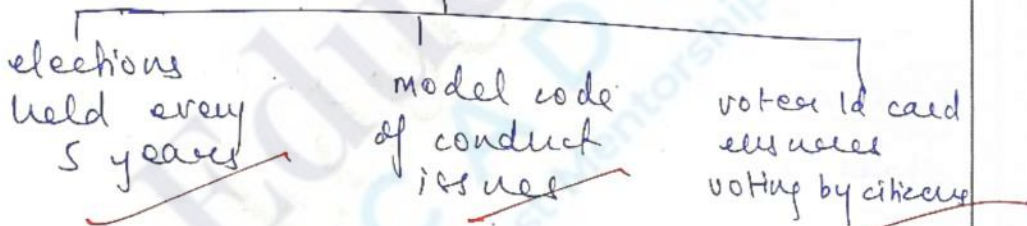 elections
held every
5 years
model code
of conduct
issues
voter Id card
ensures
voting by citizens